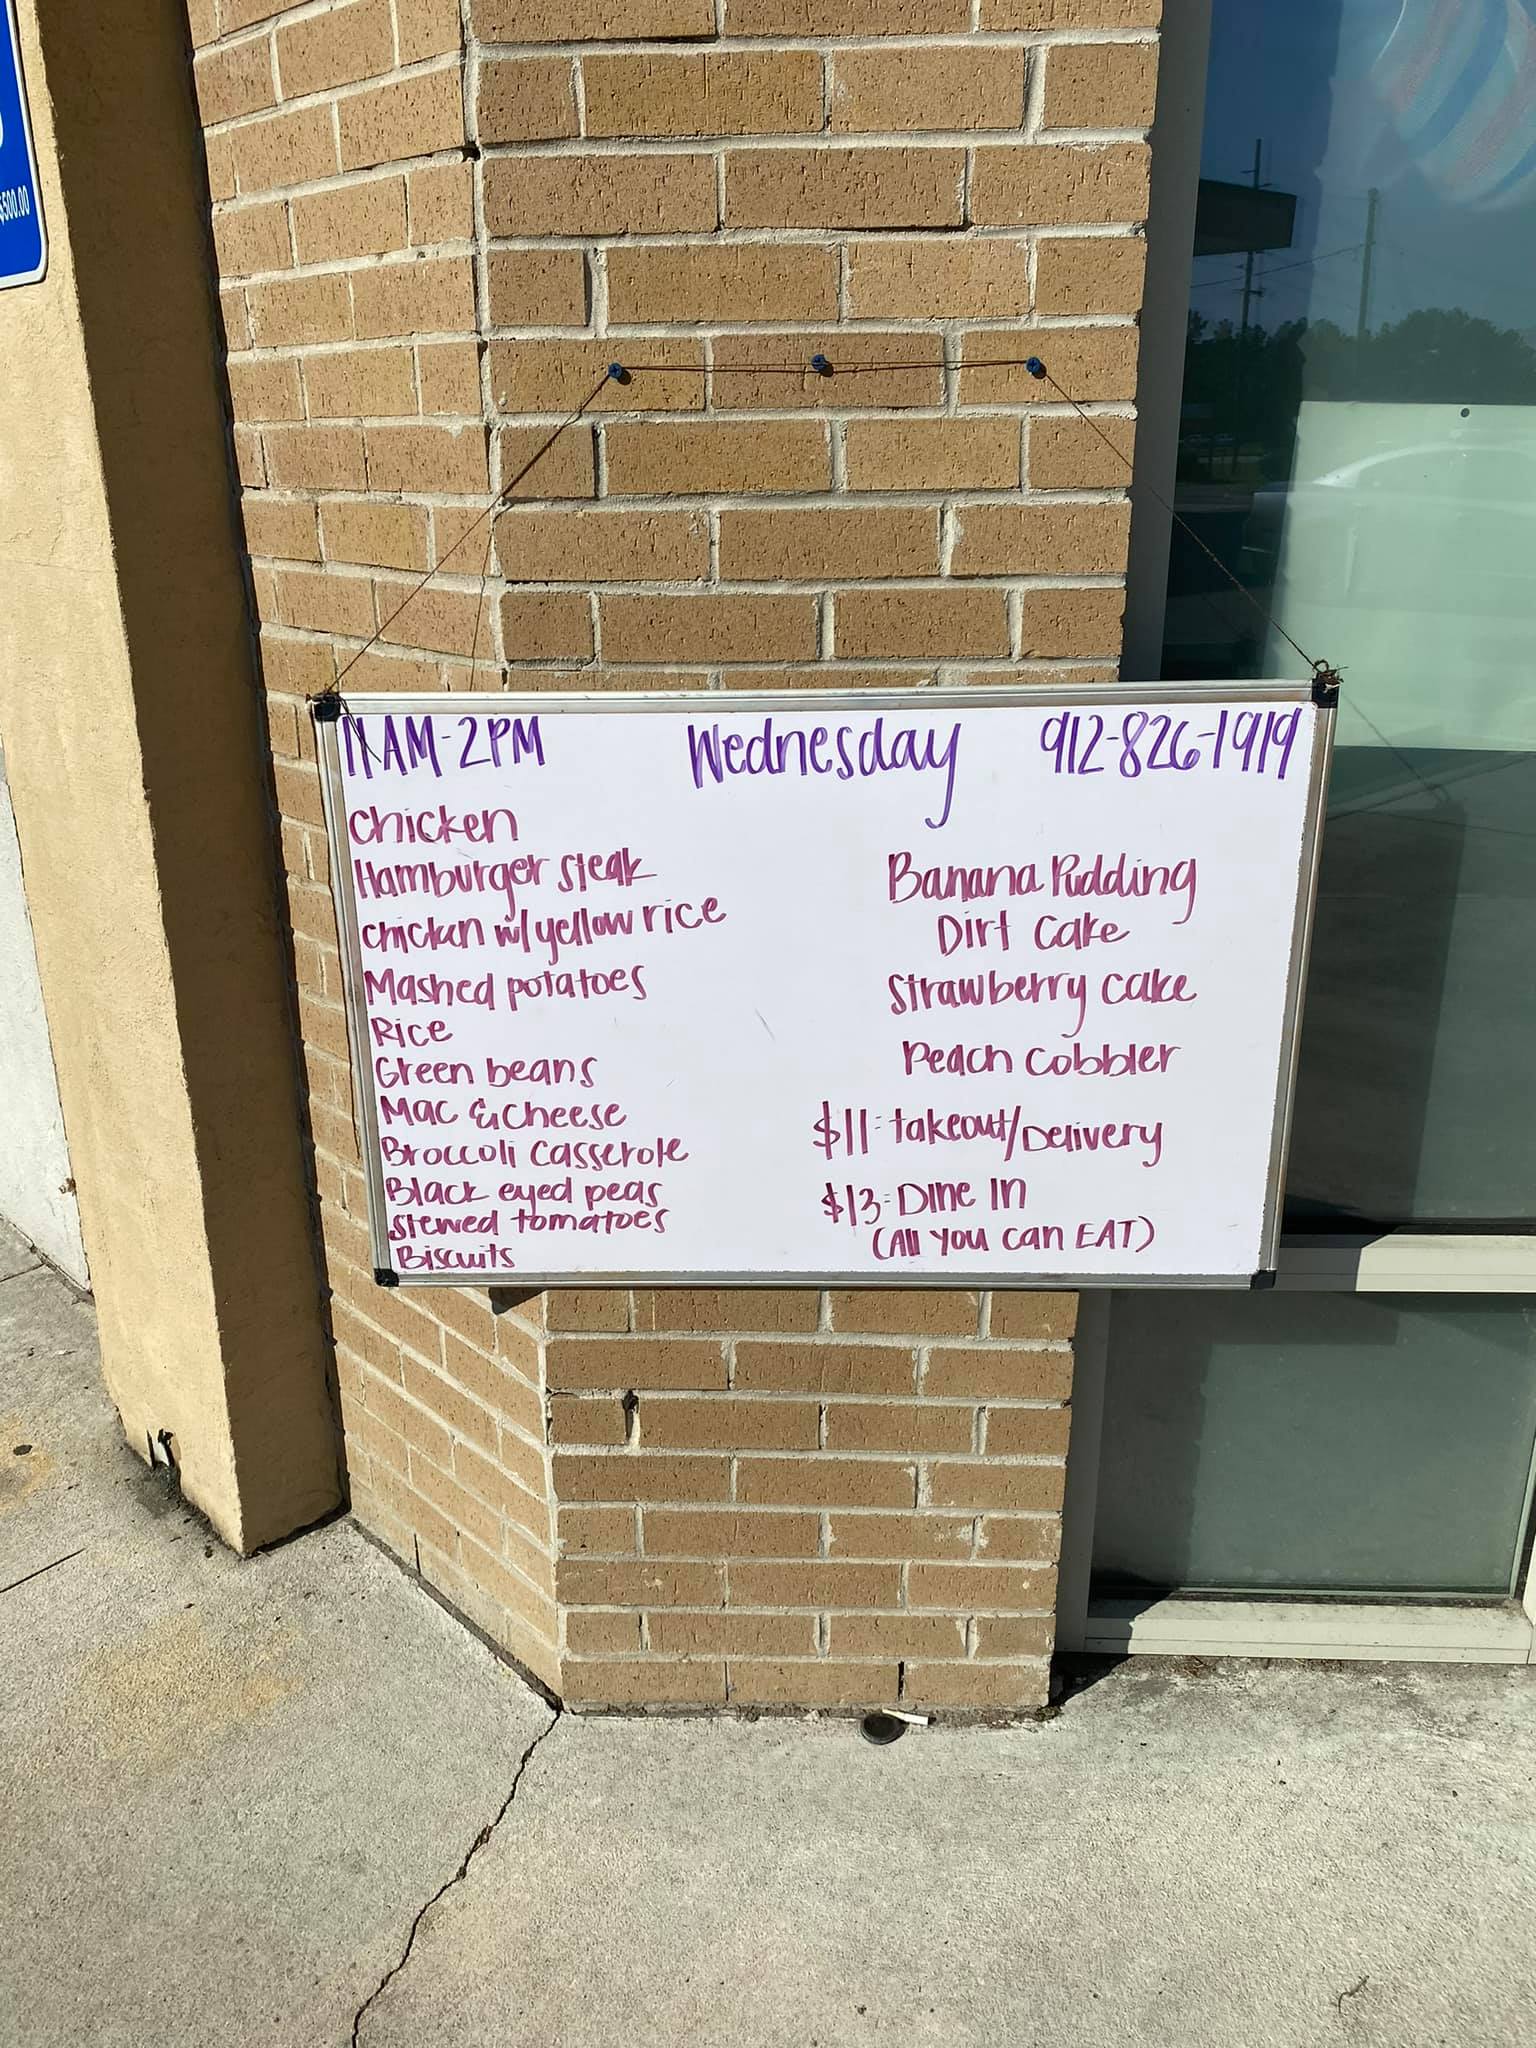 $500.00
11AM-2PM Wednesday 912-826-1919
Chicken
Hamburger steak
Chicken w/yellow rice
Mashed potatoes
Rice
Green beans
Mac & Cheese
Broccoli Casserole
Black eyed peas
Stewed tomatoes
Biscuits
Banana Pudding
Dirt Cake
Strawberry Cake
Peach Cobbler
$11-takeout/Delivery
$13-Dine In
(All you can EAT)